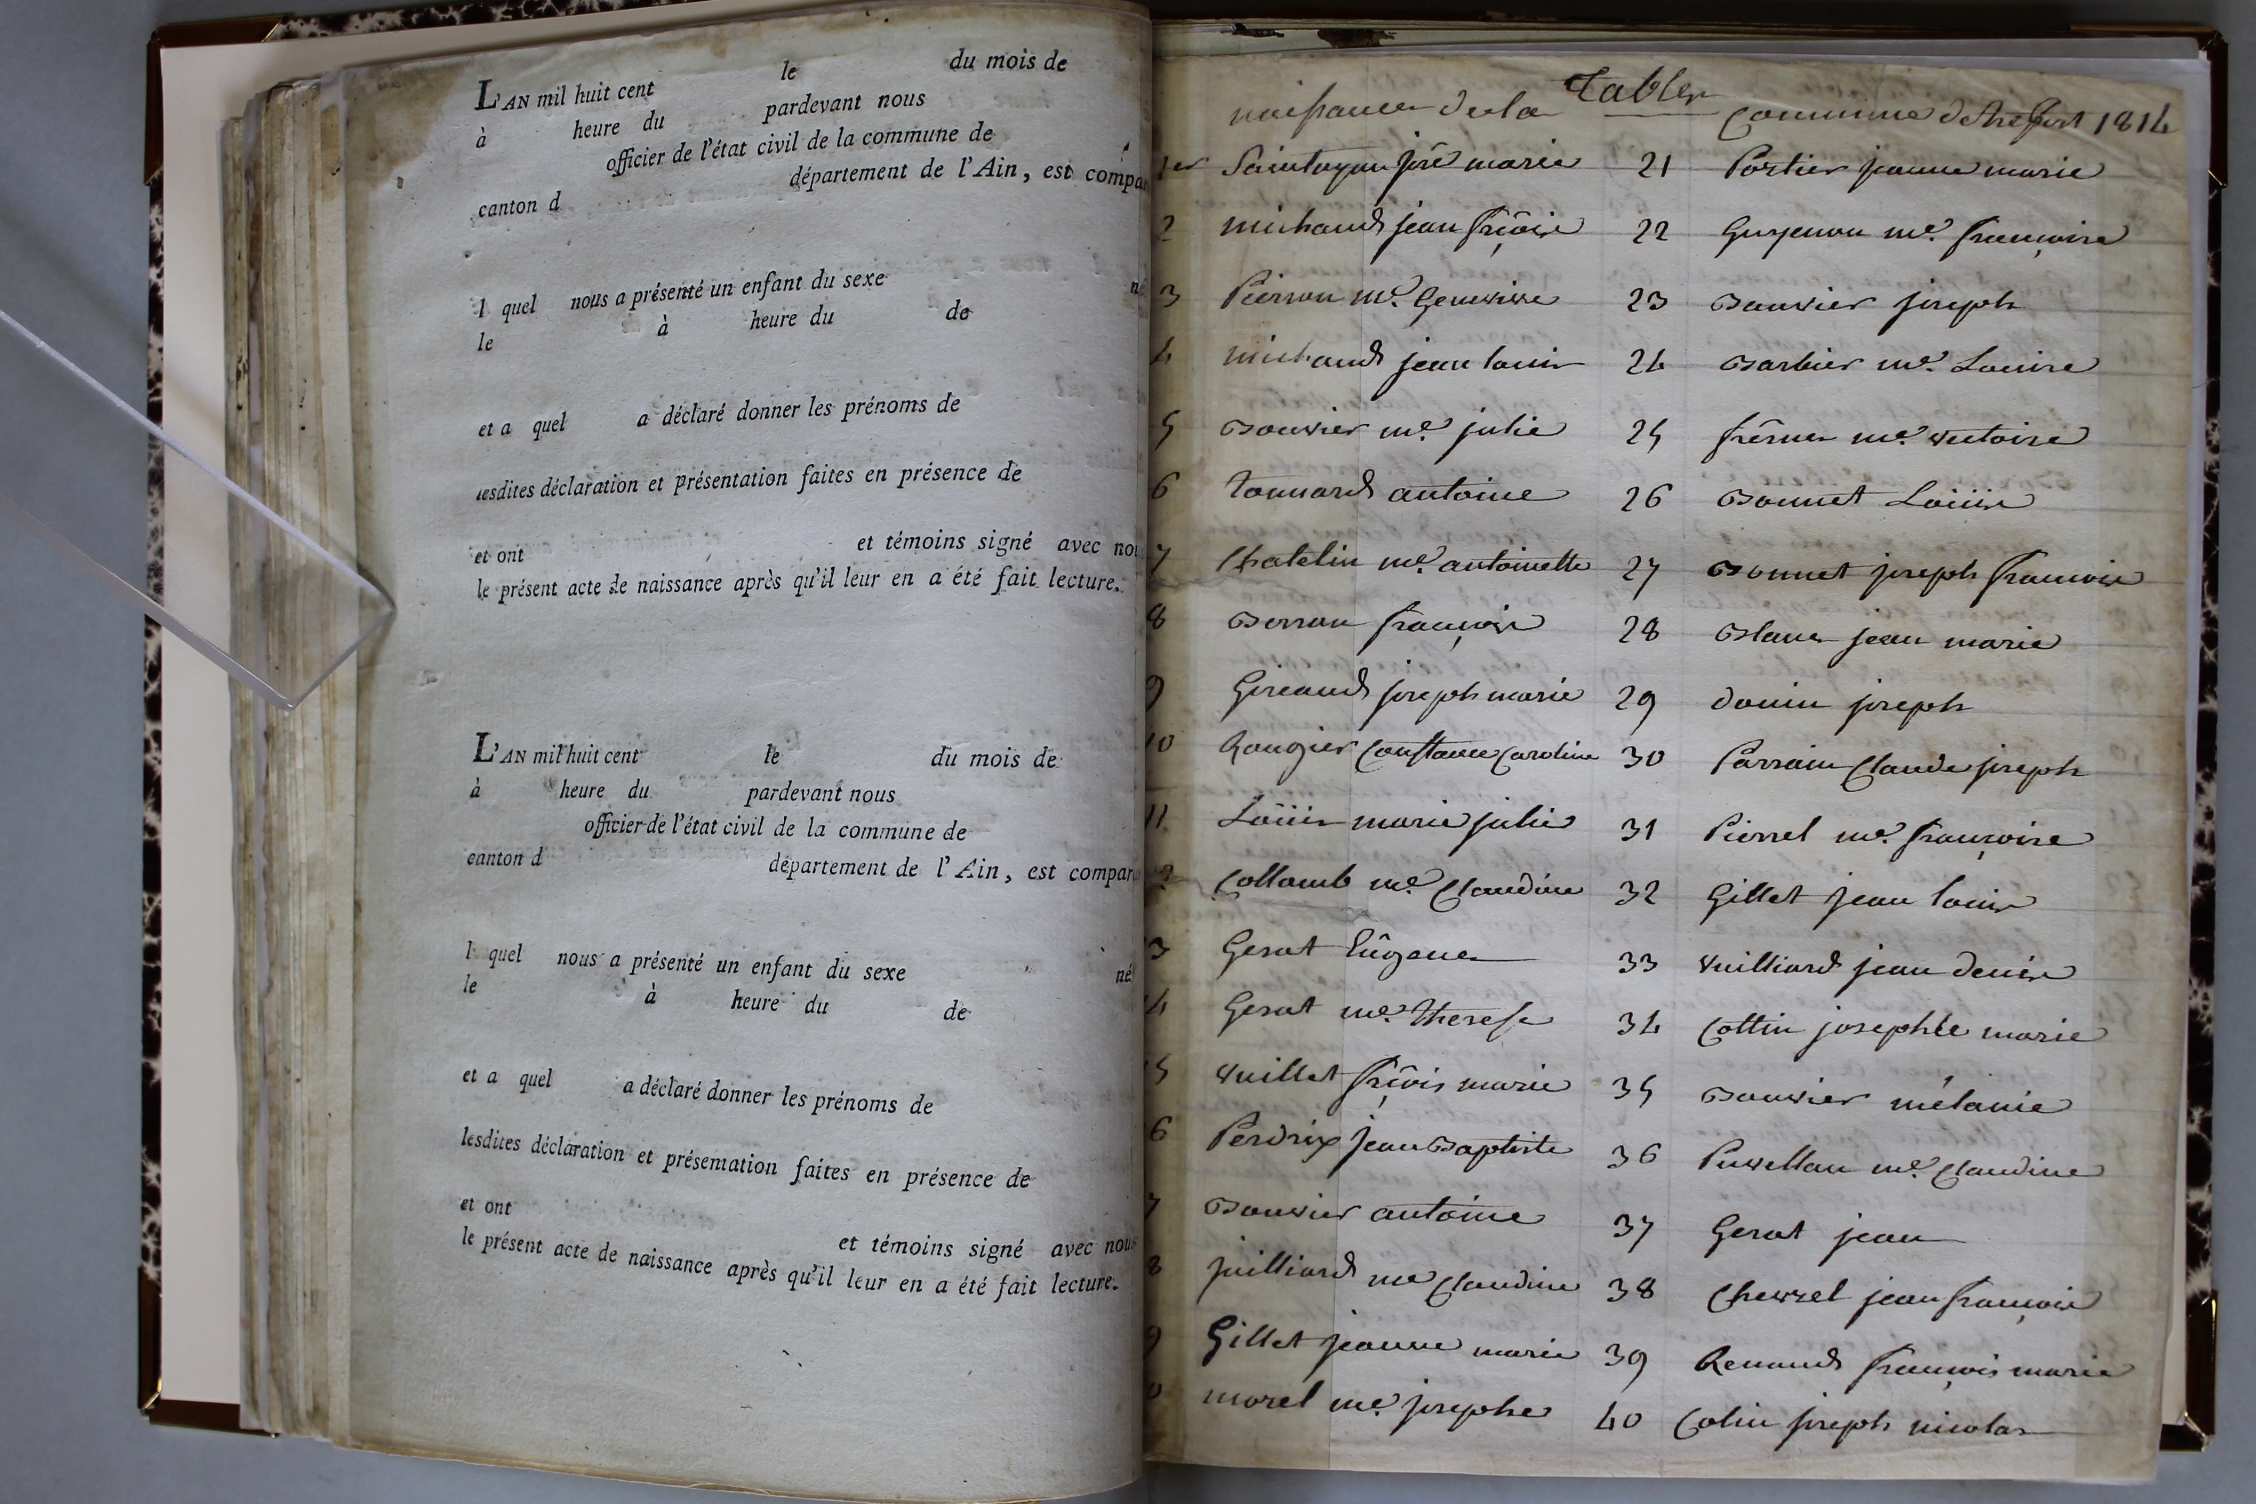 L'AN mil huit cent le du mois de
à heure du pardevant nous
officier de l'état civil de la commune de
canton d département de l'Ain, est compar
l quel nous a présenté un enfant du sexe né
le à heure du de
et a quel a déclaré donner les prénoms de
lesdites déclaration et présentation faites en présence de
et ont et témoins signé avec nou
le présent acte de naissance après qu'il leur en a été fait lecture.
L'AN mil huit cent le du mois de
à heure du pardevant nous
officier de l'état civil de la commune de
canton d département de l'Ain, est compar
l quel nous a présenté un enfant du sexe né
le à heure du de
et a quel a déclaré donner les prénoms de
lesdites déclaration et présentation faites en présence de
et ont et témoins signé avec nous
le présent acte de naissance après qu'il leur en a été fait lecture.
Tables
naissances de la commune de treffort 1814
1er marie
2 michaud jean frçois
3 Pierron me. Genevieve
4 michaud jean louis
5 Bouvier me. julie
6 antoine
7 Chatelin me. antoinette
8 Berron françois
9 Gireaud joseph marie
10 Rougier Constance Caroline
11 Loüis marie julie
2 Collomb me. Claudine
3 Gerat Eugene
4 Gerat me. Therese
5 Vuillet frçois marie
6 Perdrix jean Baptiste
7 Bouvier antoine
8 juilliard me Claudine
9 Gillet jeanne marie
0 morel me. josephe
21 Portier jeanne marie
22 Guyenon me. françoise
23 Bouvier joseph
24 Barbier me. Louise
25 me. victoire
26 Bonnet Loüis
27 Bonnet joseph françois
28 Blanc jean marie
29 Douin joseph
30 Parrain Claude joseph
31 Pierrel me. françoise
32 Gillet jean louis
33 Vuilliard jean denis
34 Cottin josephte marie
35 Bouvier mélanie
36 Puvellan me. Claudine
37 Gerat jean
38 Chevrel jean françois
39 Renaud françois marie
40 Colin joseph nicolas